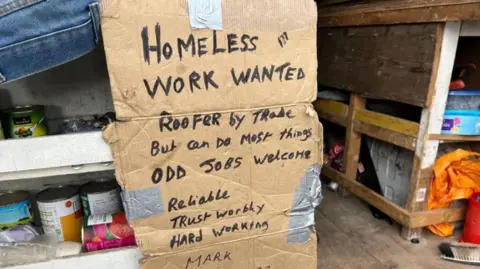 HOMELESS "
WORK WANTED
ROOFER by TRADE
BUT CAN DO MOST THINGS
ODD JOBS WELCOME
RELIABLE
TRUST WORTHY
HARD WORKING
MARK